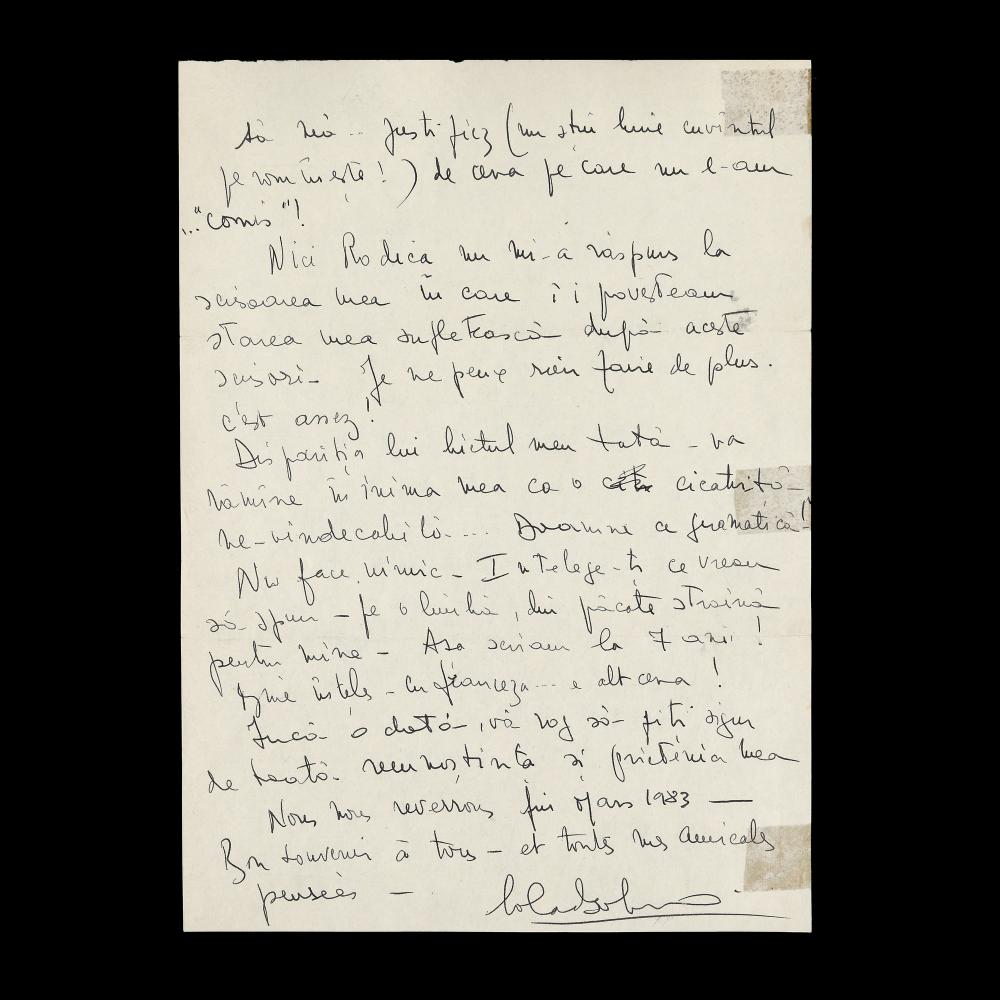 să mă.. justific (nu știu bine cuvîntul
pe românește!) de ceva pe care nu l-am
..."comis"!
Nici Rodica nu mi-a răspuns la
scrisoarea mea în care îi povesteam
starea mea sufletească după aceste
scrisori- Je ne peux rien faire de plus.
c'est assez!
Dispariția lui bietul meu tată - va
rămîne în inima mea ca o cicatrită-
ne-vindecabilă.... Doamne ce gramatică-!
Nu face nimic- Intelege-ti ce vreau
să spun - pe o limbă, din păcate străină
pentru mine - Asa scriam la 7 ani!
bine înteles - cu franceza... e alt ceva!
Incă o dată, vă rog să fiți sigur
de toată recunoștința și prietenia mea
Nous nous reverrons fin Mars 1983 —
Bon souvenir à tous - et toutes mes amicales
pensées -